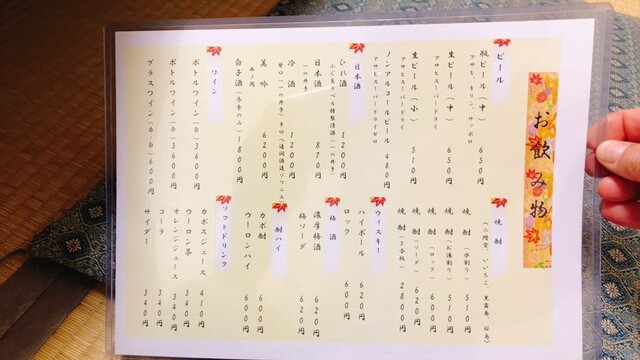 お飲み物
ビール
瓶ビール(中) 650円
アサヒ、キリン、サッポロ
生ビール(中) 650円
アサヒスーパードライ
生ビール(小) 510円
アサヒスーパードライ
ノンアルコールビール 480円
アサヒスーパードライゼロ
日本酒
ひれ酒 1200円
ふぐラベル特製清酒(一の井手)
日本酒 870円
(一の井手)
冷酒 1200円
甘口(一の井手)
美吟 6200円
白子酒 1800円
ワイン
ボトルワイン(白)3600円
ボトルワイン(赤)3600円
グラスワイン(赤・白)600円
焼酎
(二階堂、いいちこ、黒霧島、
焼酎(水割り) 510円
焼酎(お湯割り) 510円
焼酎(ロック) 600円
焼酎(ソーダ) 620円
焼酎(5合瓶) 2800円
ウィスキー
ハイボール 620円
ロック 600円
梅酒
濃厚梅酒 620円
梅ソーダ 620円
酎ハイ
カボ酎 600円
ウーロンハイ 600円
ソフトドリンク
カボスジュース 410円
ウーロン茶 340円
オレンジジュース 340円
コーラ 340円
サイダー 340円